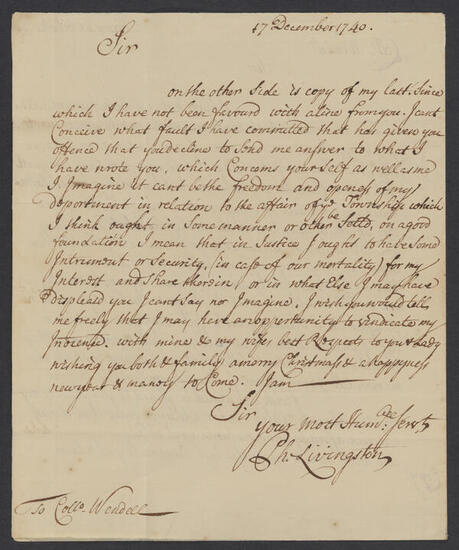 17 December 1740.
Sir
on the other Side is copy of my last. Since
which I have not been favourd with a line from you. I cant
Conceive what fault I have committed that has given you
offence that you decline to Send me answer to what I
have wrote you, which Concerns your Self as well as me
I Imagine it cant be the freedom and openess of my
deportment in relation to the affair of ye Township which
I think ought in Some manner or other be Setld, on a good
foundation I mean that in Justice I ought to have Some
Intrument or Security, (in case of our mortality) for my
Interest and Share therein, or in what Else I may have
Displeasd you I cant Say nor Imagine, I wish you would tell
me freely that I may have an opportunity to vindicate my
Inocence. with mine & my wifes best Respects to you & Lady
wishing you both & family a merry Christmass & a happy
new year & many to Come. I am
Sir
your Most Humble Servt
Ph: Livingston
To Collo. Wendell